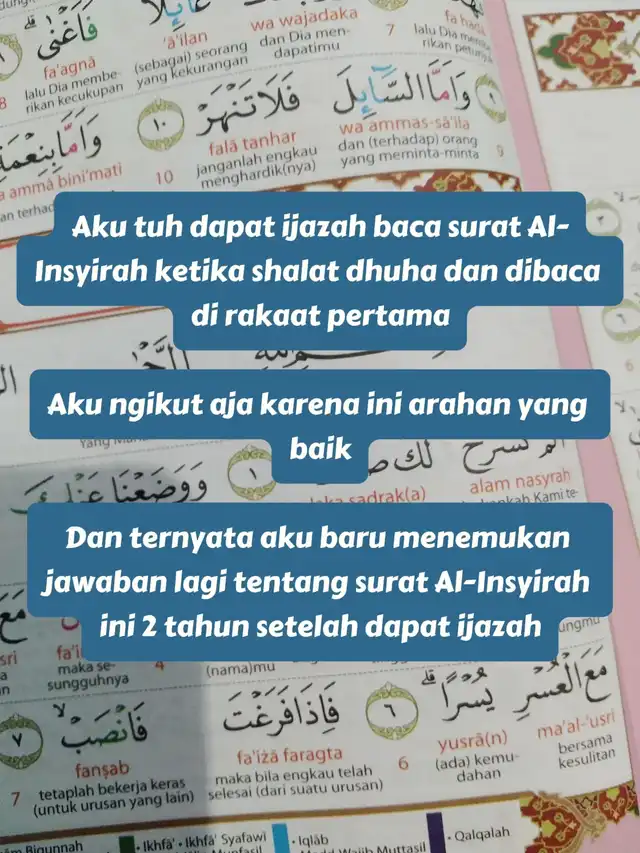 فَاَغْنٰى
عَاۤىِٕلًا
fa'agnā
'ā'ilan
wa wajadaka
lalu Dia membe-
(sebagai) seorang
dan Dia men-
lalu Dia
rikan kecukupan
yang kekurangan
dapatimu
8
7
وَاَمَّا السَّاۤىِٕلَ
فَلَا تَنْهَرْ
١٠
wa ammas-sā'ila
falā tanhar
dan (terhadap) orang
janganlah engkau
yang meminta-minta
menghardik(nya)
9
10
وَاَمَّا بِنِعْمَةِ
ammā bini'mati
Aku tuh dapat ijazah baca surat Al-
Insyirah ketika shalat dhuha dan dibaca
di rakaat pertama
Aku ngikut aja karena ini arahan yang
baik
لَكَ
١
وَوَضَعْنَا عَنْكَ
alam nasyraḥ
ṣadrak(a)
Dan ternyata aku baru menemukan
jawaban lagi tentang surat Al-Insyirah
ini 2 tahun setelah dapat ijazah
maka se-
sungguhnya
4
(nama)mu
مَعَ الْعُسْرِ يُسْرًاۗ
٦
فَاِذَا فَرَغْتَ
فَانْصَبْۙ
٧
ma'al-'usri
yusrā(n)
fa'iżā faragta
fanṣab
bersama
kesulitan
(ada) kemu-
dahan
6
maka bila engkau telah
selesai (dari suatu urusan)
tetaplah bekerja keras
(untuk urusan yang lain)
7
Bigunnah
• Ikhfā' • Ikhfā' Syafawi
• Iqlāb
• Qalqalah
Wajib Muttasil